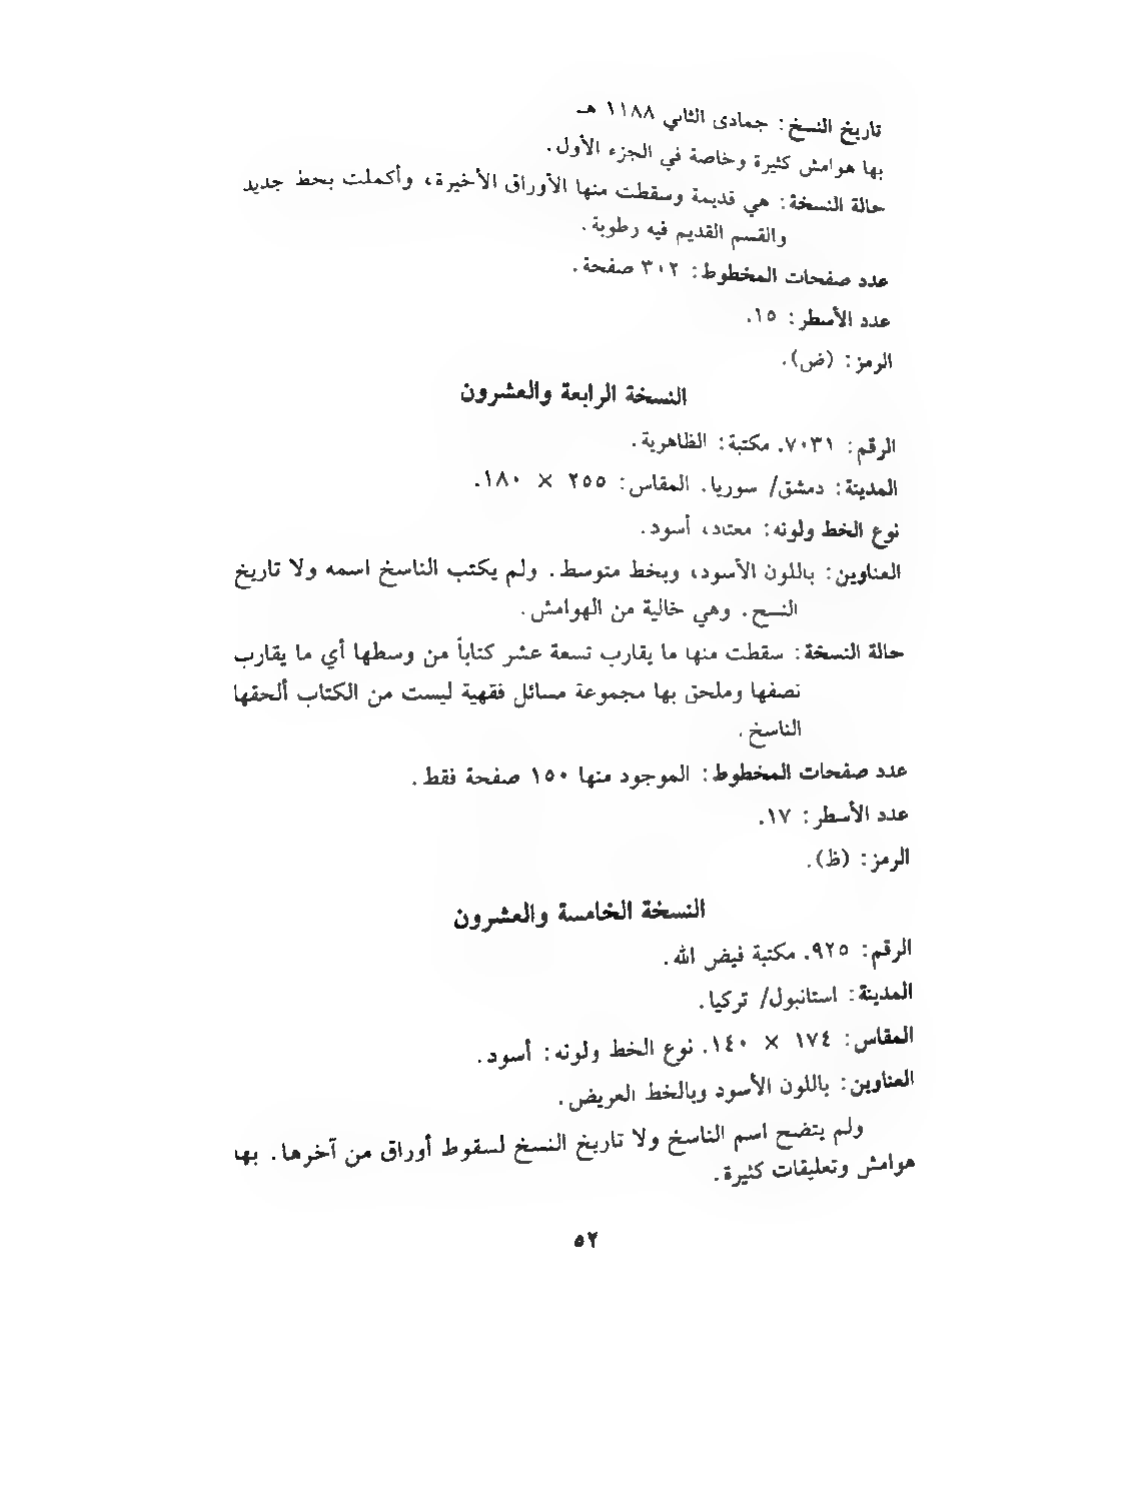 تاريخ النسخ: جمادى الثاني ١١٨٨ هـ
بها هوامش كثيرة وخاصة في الجزء الأول.
حالة النسخة: هي قديمة وسقطت منها الأوراق الأخيرة، وأكملت بخط جديد
والقسم القديم فيه رطوبة.
عدد صفحات المخطوط: ٣٠٢ صفحة.
عدد الأسطر: ١٥.
الرمز: (ض).
النسخة الرابعة والعشرون
الرقم: ٧٠٣١. مكتبة: الظاهرية.
المدينة: دمشق/ سوريا. المقاس: ٢٥٥ × ١٨٠.
نوع الخط ولونه: معتاد، أسود.
العناوين: باللون الأسود، وبخط متوسط. ولم يكتب الناسخ اسمه ولا تاريخ
النسخ. وهي خالية من الهوامش.
حالة النسخة: سقطت منها ما يقارب تسعة عشر كتاباً من وسطها أي ما يقارب
نصفها وملحق بها مجموعة مسائل فقهية ليست من الكتاب ألحقها
الناسخ.
عدد صفحات المخطوط: الموجود منها ١٥٠ صفحة فقط.
عدد الأسطر: ١٧.
الرمز: (ظ).
النسخة الخامسة والعشرون
الرقم: ٩٢٥. مكتبة فيض الله.
المدينة: استانبول/ تركيا.
المقاس: ١٧٤ × ١٤٠. نوع الخط ولونه: أسود.
العناوين: باللون الأسود وبالخط العريض.
ولم يتضح اسم الناسخ ولا تاريخ النسخ لسقوط أوراق من آخرها. بها
هوامش وتعليقات كثيرة.
٥٢